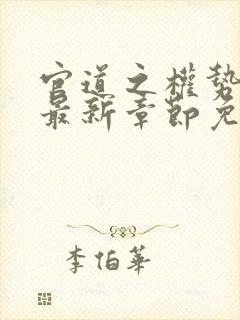 官道之權勢
最新章節免
李伯華